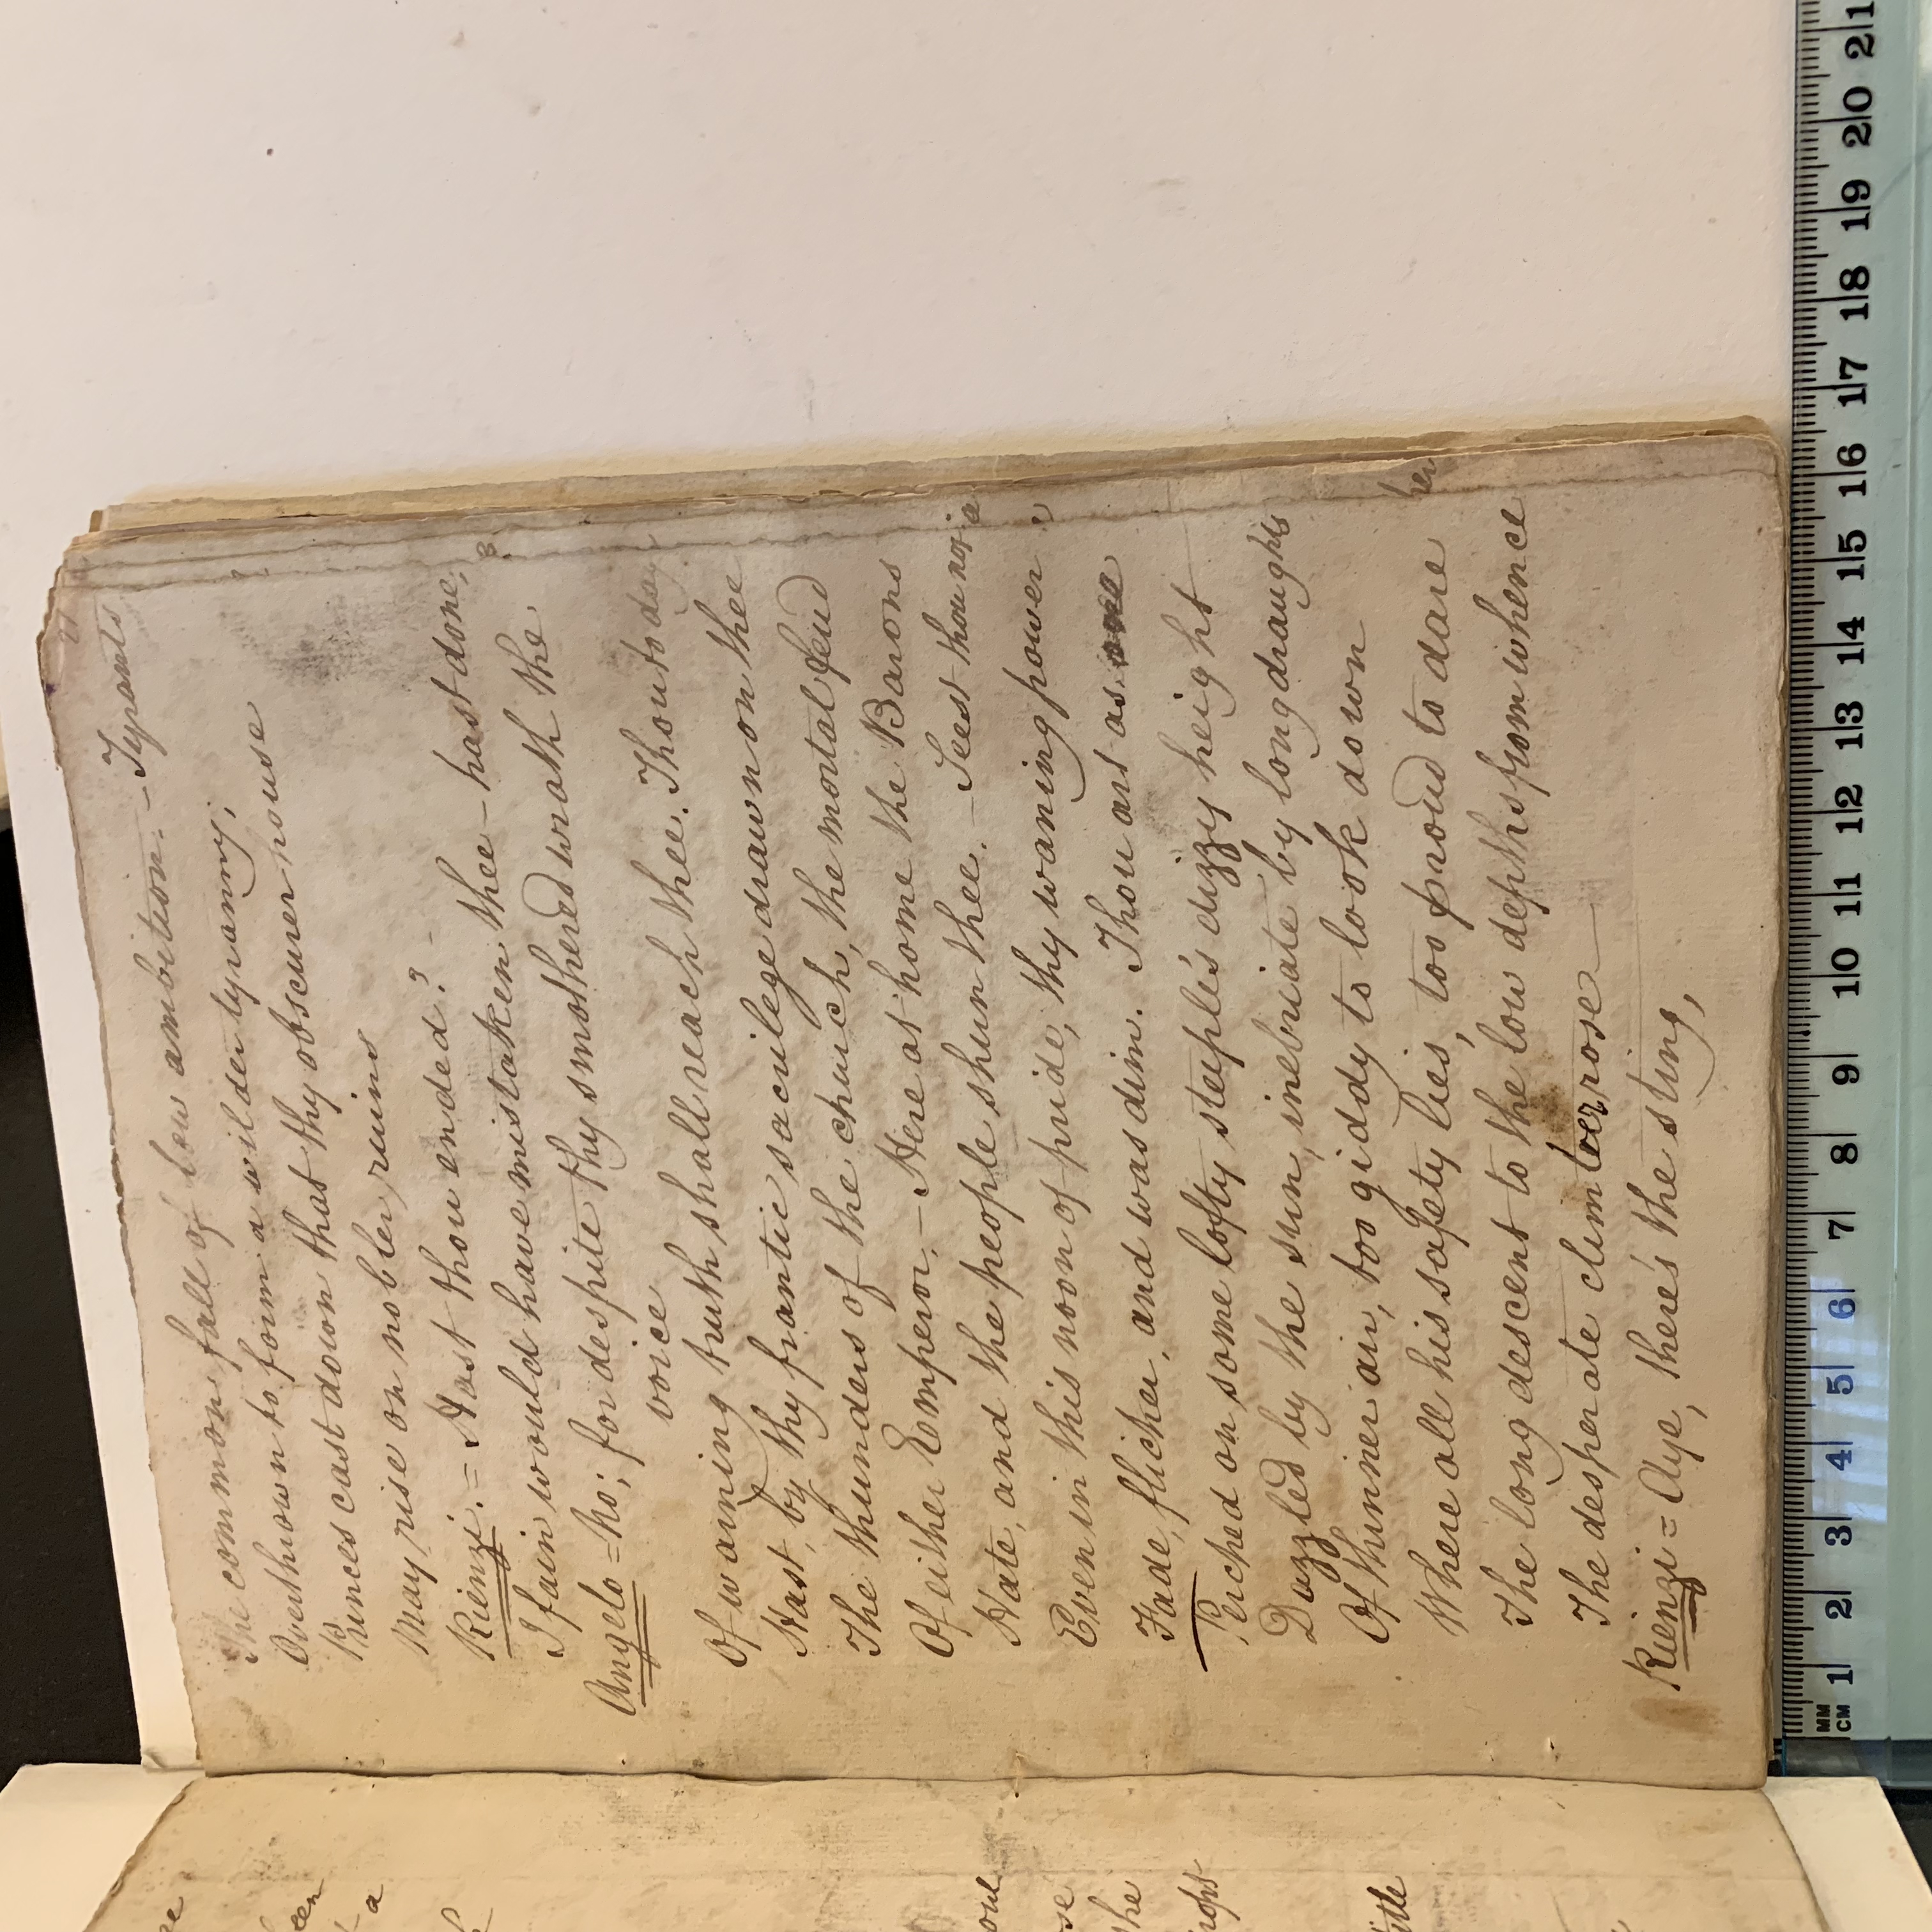 The common fall of low ambition. – Tyrants
Overthrown to form a wilder tyranny;
Princes cast down that thy obscurer house
May rise on nobler ruins
Rienzi. = Hast thou ended? -
I fain would have mistaken thee – hast done,
Angelo = No; for despite thy smothered wrath the
voice
Of warning truth shall reach thee. Thou to day
Hast, by thy frantic sacrilege drawn on thee
The thunders of the church, the mortal feud
Of either Emperor. – Here at home the Barons
Hate, and the people shun thee. – Seest thou not
Even in this noon of pride, thy waning power
Fade, flicker, and was dim. Thou art as one
Perched on some lofty steeple's dizzy height
Dazzled by the sun, inebriate by long draughts
Of thinner air, too giddy to look down
Where all his safety lies, too proud to dare
The long descent to the low depths from whence
The desperate climber rose —
Rienzi = Aye, there's the sting,
MM
CM 1 2 3 4 5 6 7 8 9 10 11 12 13 14 15 16 17 18 19 20 21